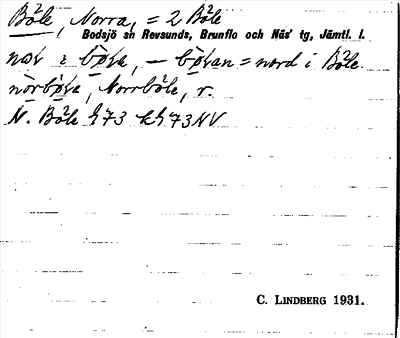 Böle, Norra, = 2 Böle
Bodsjö sn Revsunds, Brunflo och Näs' tg, Jämtl. l.
nол i böκa, – böκan = nord i Böle.
norböκa, Norrböle, r.
N. Böle h73 kh73NV
C. LINDBERG 1931.